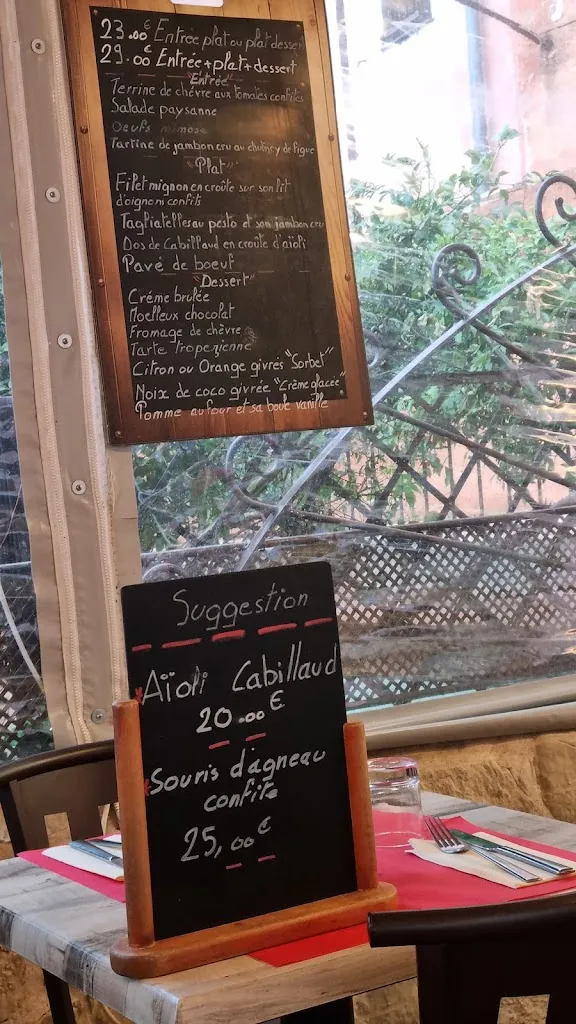 23.00€ Entrée plat ou plat dessert
29.00€ Entrée+plat+dessert
"Entrée"
Terrine de chèvre aux tomates confites
Salade paysanne
Oeufs mimosa
Tartine de jambon cru au chutney de figue
"Plat"
Filet mignon en croûte sur son lit
d'oignons confits
Tagliatelles au pesto et son jambon cru
Dos de Cabillaud en croûte d'aïoli
Pavé de boeuf
"Dessert"
Crème brulée
Moelleux chocolat
Fromage de chèvre
Tarte tropezienne
Citron ou Orange givrés "Sorbet"
Noix de coco givrée "Crème glacée"
Pomme au four et sa boule vanille
Suggestion
Aïoli Cabillaud
20.00€
Souris d'agneau
confite
25,00€